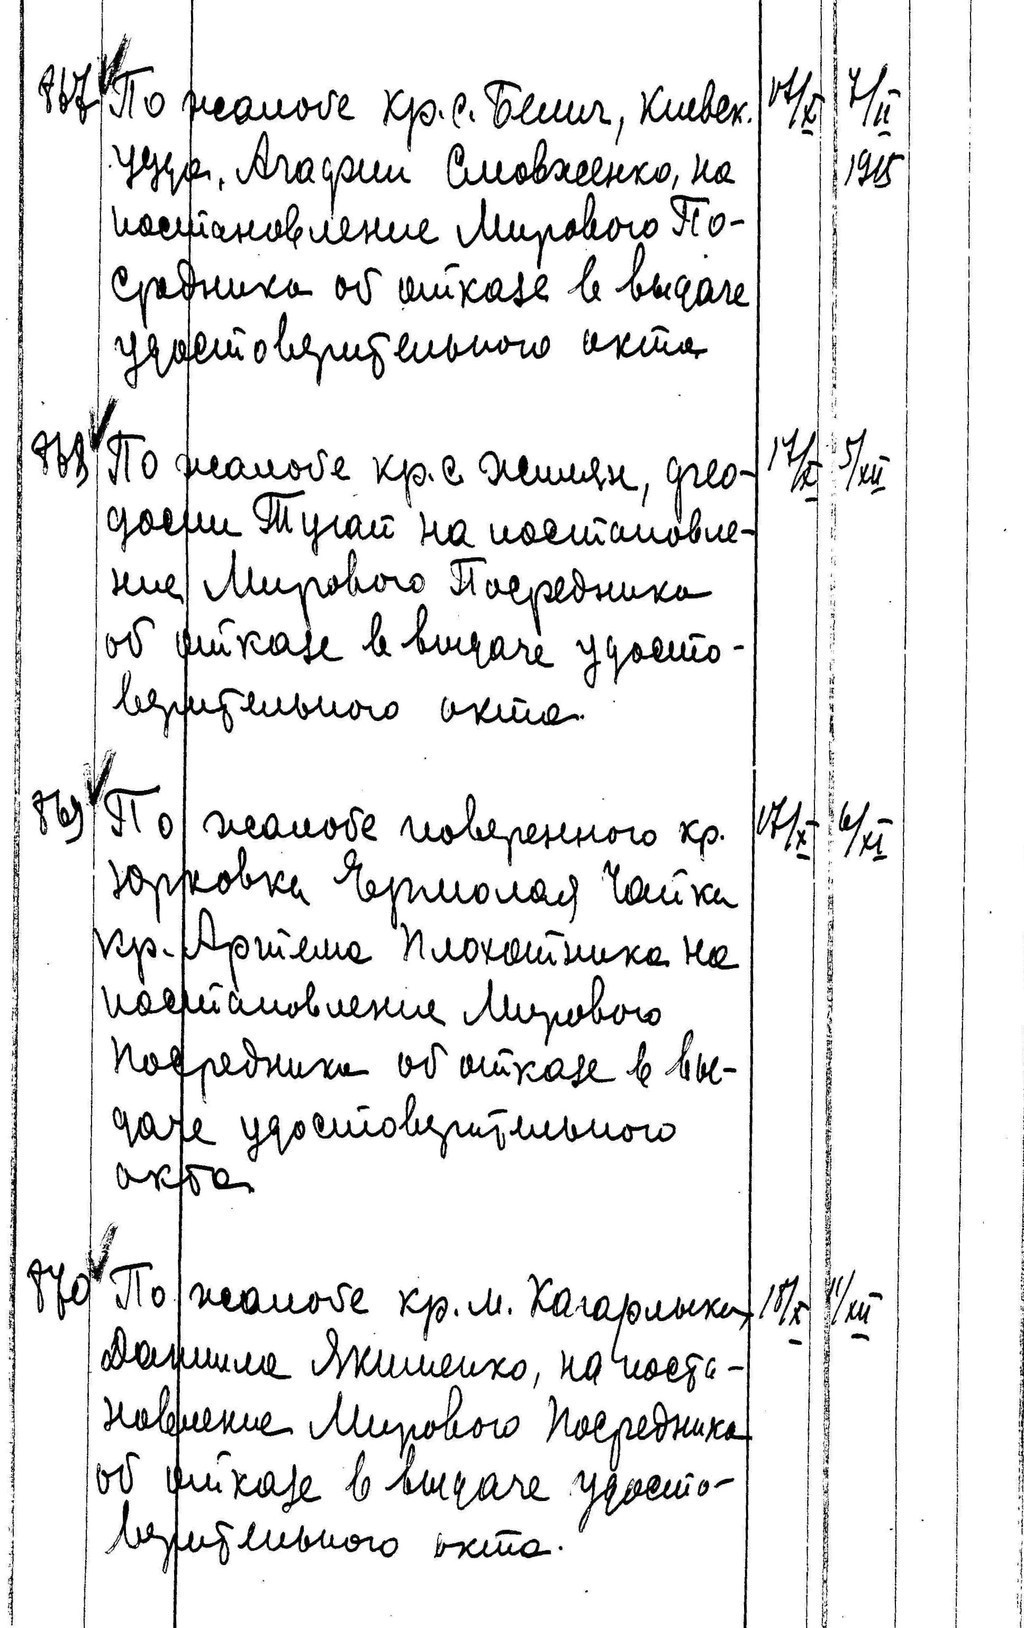 867 По жалобе кр. с. Белич, Киевск. 17/X 7/II
уезда, Агафии Словженко, на 1915
постановление Мирового По-
средника об отказе в выдаче
удостоверительного акта
868 По жалобе кр. с. Жилян, Фео- 17/X 5/XII
досии Тугай на постановле-
ние Мирового Посредника
об отказе в выдаче удосто-
верительного акта.
869 По жалобе поверенного кр. 17/X 6/XI
Юрковки Ермолая Чайки
кр. Артема Плохотника на
постановление Мирового
Посредника об отказе в вы-
даче удостоверительного
акта
870 По жалобе кр. м. Кагарлыка, 18/X 11/XII
Данила Якименко, на поста-
новление Мирового Посредника
об отказе в выдаче удосто-
верительного акта.